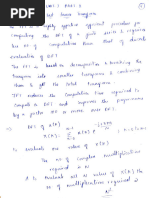 UNIT I PART I
①
Fast Fourier Transform
The FFT is a highly efficient procedure for
computing the DFT of a finite series & requires
less no of computations than that of direct
evaluation of DFT.
The FFT is based on decomposition & breaking the
transform into smaller transforms & combining
them to get the total transform.
FFT reduces the computation time required to
compute a DFT & improves the performance
by a factor 100 or more over DFT.
DFT of x(n)
X(K) = x(n)
To evaluate one value of X(K)
The no of complex multiplication
required is N
To evaluate all N values of X(K) the
no of multiplication required is
N²